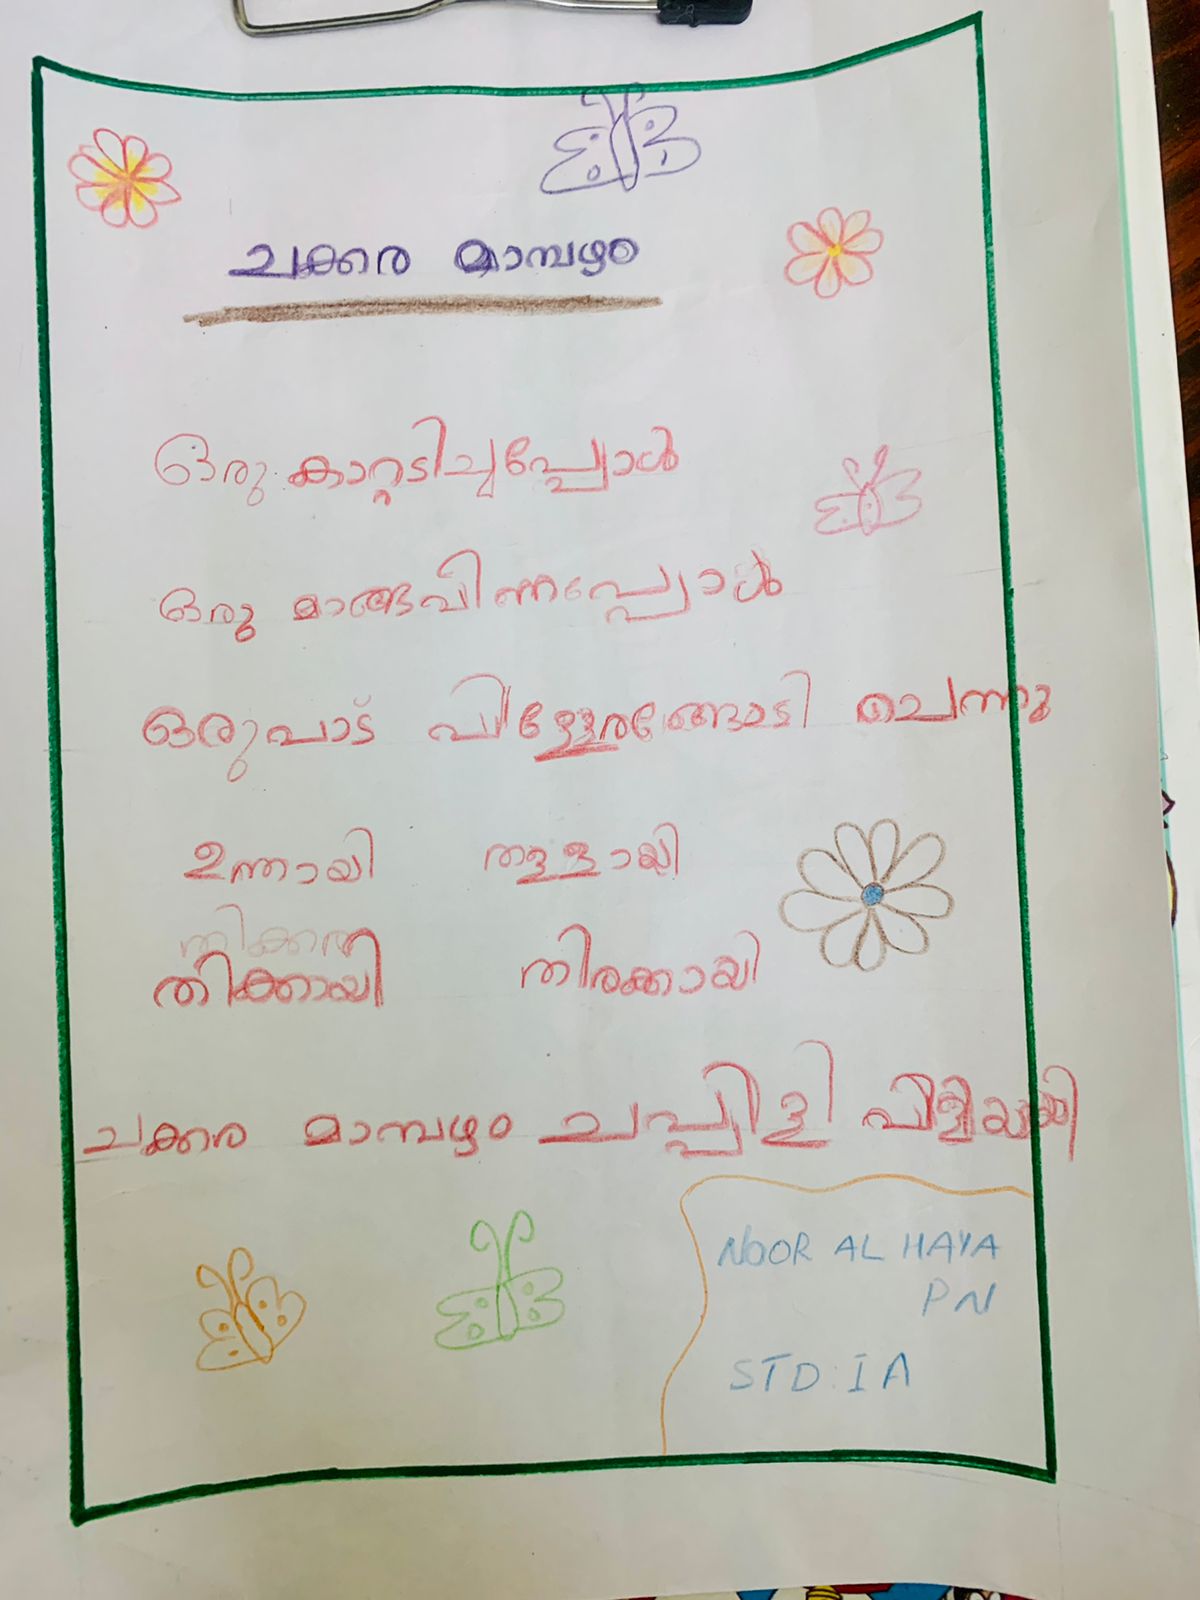 ചക്കര മാമ്പഴം
ഒരു കാറ്റടിച്ചപ്പോൾ
ഒരു മാങ്ങവീണപ്പോൾ
ഒരുപാട് പിള്ളേരങ്ങോടി ചെന്നു
ഉന്തായി തള്ളായി
തിക്കായി തിരക്കായി
ചക്കര മാമ്പഴം ചപ്പിളി പിളിയായി
NOOR AL HAYA
PN
STD: I A